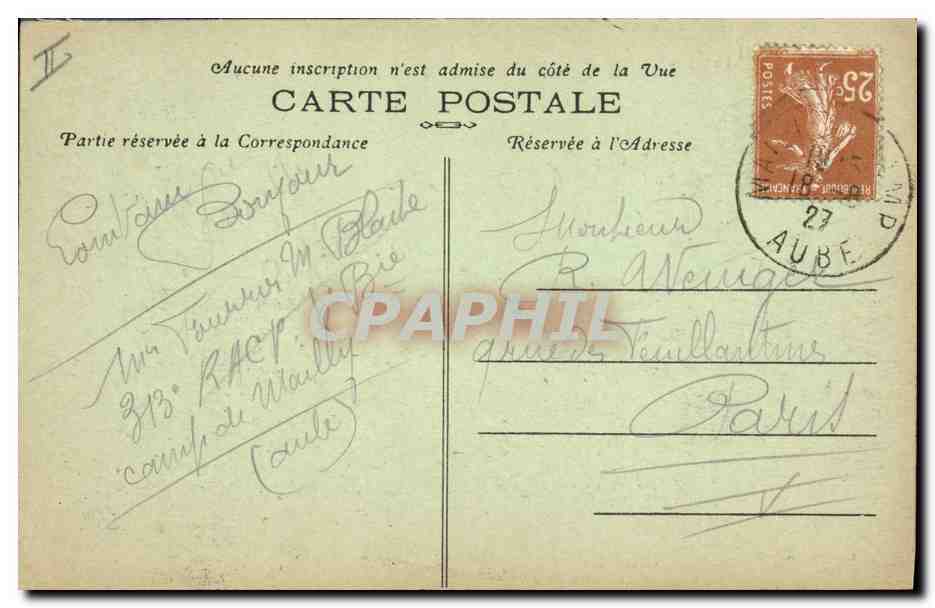 II
Aucune inscription n'est admise du côté de la Vue
CARTE POSTALE
Partie réservée à la Correspondance
Réservée à l'Adresse
25c
POSTES
REPUBLIQUE FRANCAISE
18
27
AUBE
Bonjour
Mr M. Blache
313e RACP Bie
camp de Mailly
(aube)
Monsieur
R. Weniger
rue des Feuillantines
Paris
V
CPAPHIL